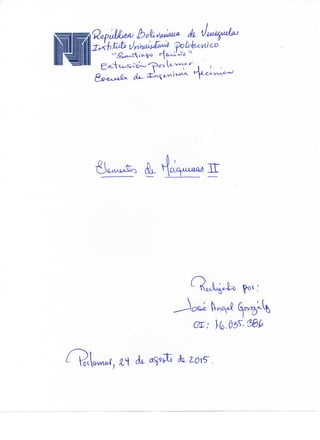 República Bolivariana de Venezuela
Instituto Universitario Politécnico
"Santiago Mariño"
Extensión Porlamar
Escuela de Ingeniería Mecánica
Elementos de Máquinas II
Realizado por:
José Angel González
CI: 16.035.386
Porlamar, 24 de agosto de 2015.